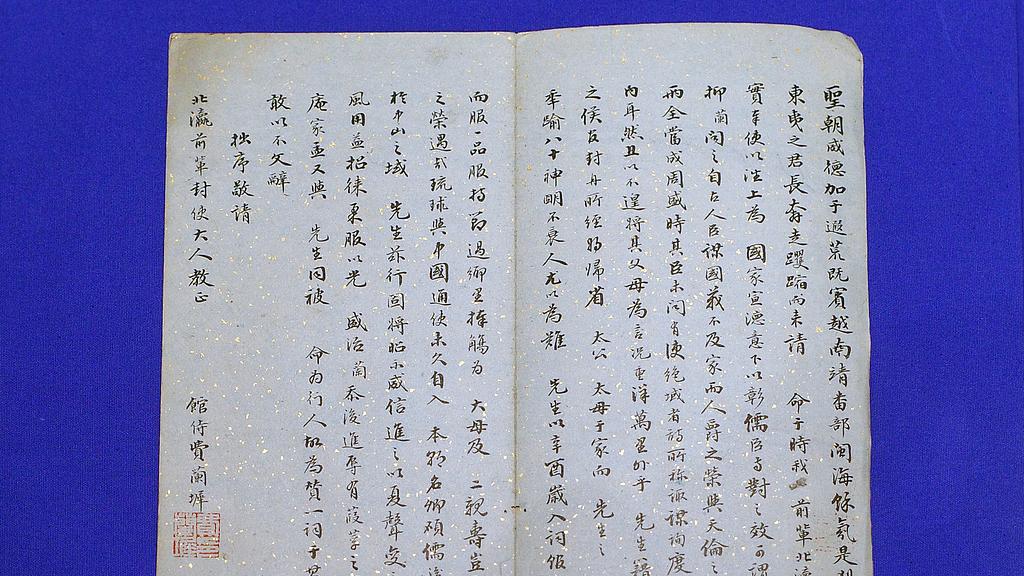 聖朝威德加于遐荒既賓越南靖番部閩海餘氛是
東夷之君長奔走躍踊而来請 命于時我 前輩北瀛
實奉使以往上為 國家宣德意下以彰儒臣專對之效可謂
抑蘭聞之自古人臣謀國義不及家而人爵之榮與天倫之
兩全當成周盛時其臣未聞有使絶域者詩所称諏謀詢度
内耳然且以不遑將其父母為言况重洋萬里外乎 先生籍
之侯官封舟所經得歸省 太公 太母于家而 先生之
年踰八十神明不衰人尤以為難 先生以辛酉歲入詞館
而服一品服持節過鄉里捧觴為 大母及 二親壽豈
之榮遇哉琉球與中國通使未久自入 本朝名卿碩儒
於中山之域 先生茲行固將昭示威信進之以夏聲變之
風用益招徠裏服以光 盛治蘭忝後進辱有葭莩之
庵家孟又與 先生同被 命為行人故為贊一詞于
敢以不文辭
拙序敬請
北瀛前輩封使大人教正
館侍費蘭墀